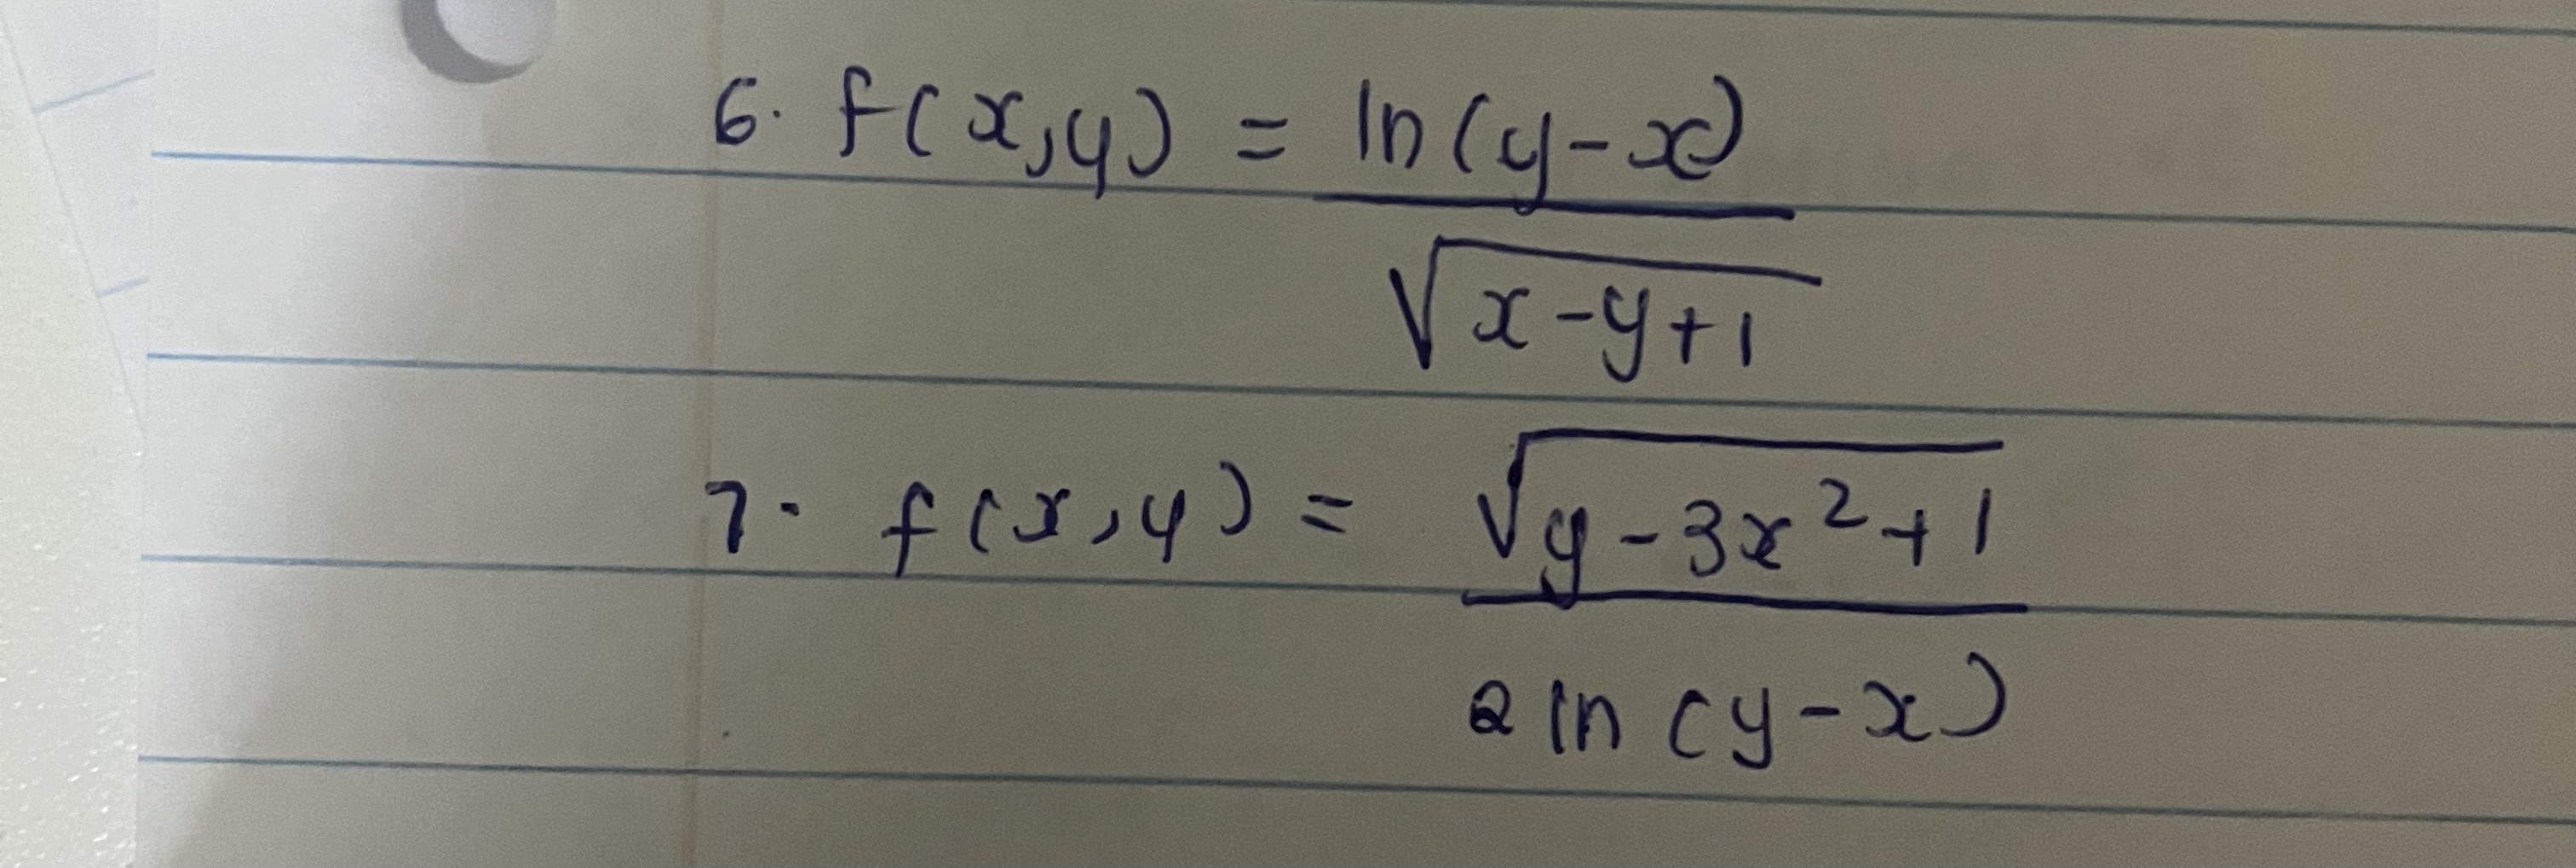 6. f(x,y) = ln(y-x)
√x-y+1
7. f(x,y) = √y-3x²+1
2 ln (y-x)